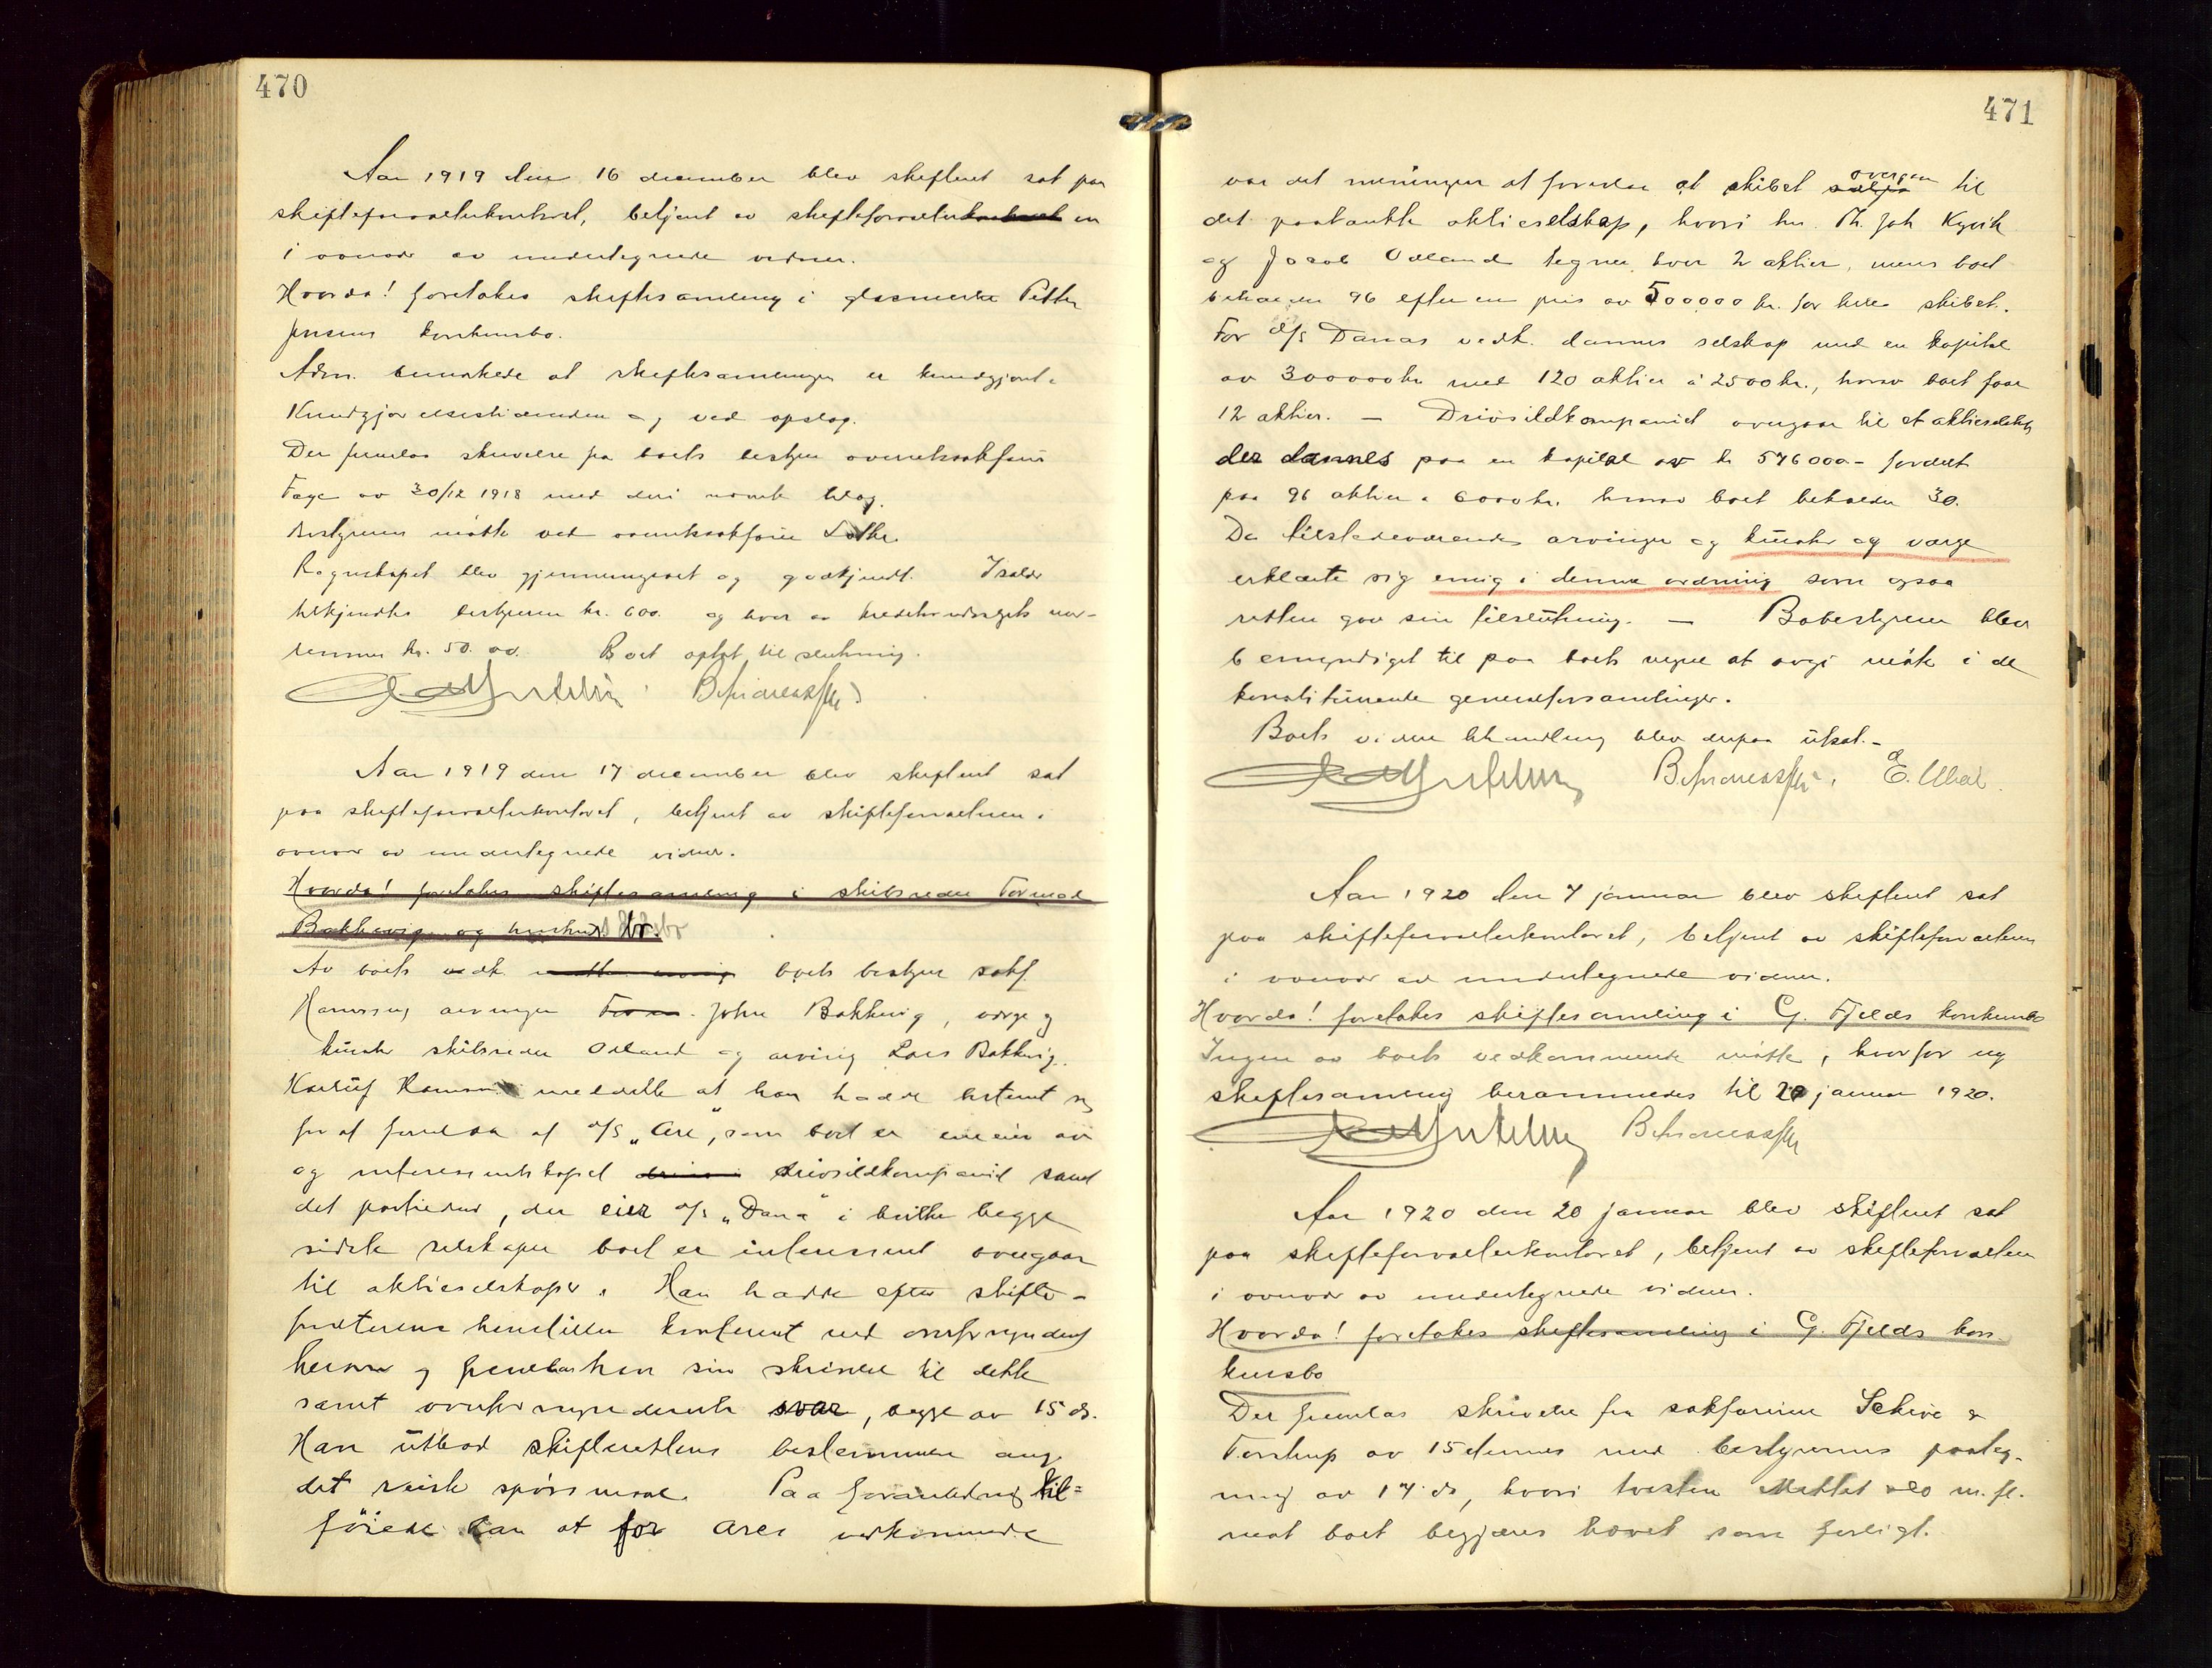 470
Aar 1919 den 16 december blev skifteret sat paa
skifteforvalterkontoret, betjent av skifteforvalterkontoret en
i overvær av undertegnede vidner.
Hvorda! foretokes skiftesamling i glasmester Petter
Jensens konkursbo.
Adm. bemerkede at skiftesamlingen er kundgjort i
Kundgjørelsestidenden og ved opslag.
Der fremlaa skrivelse fra boets bestyrer overretssakfører
Fage av 30/12 1918 med deri nævnte bilag.
Bestyreren møtte ved overretssakfører Lothe
Regnskapet blev gjennemgaaet og godkjendt. I salær
tilkjendtes bestyreren kr. 600. og hver av kreditorutvalgets med-
lemmer kr. 50.00. Boet optat til slutning.
Aar 1919 den 17 december blev skifteret sat
paa skifteforvalterkontoret, betjent av skifteforvalteren i
overvær av undertegnede vidner.
Hvorda! foretokes skiftesamling i skibsreder Tormod
Bakkevig og hustrus bo
Av boets vedk. møtte boets bestyrer sakf.
Hamsun, arvingen John Bakkevig, værge og
kurator skibsreder Odland og arving Lars Bakkevig.
meldte at han hadde bestemt sig
for at foreslaa at d/s "Are", som boet er eneeier av
og interessentskapet drivsildkompaniet samt
det partrederi, der eier d/s "Dana" i hvilke begge
sidste selskaper boet er interessent overgaar
til aktieselskaper. Han hadde efter skifte-
forvalterens henstillen konferert med overformynderiet
herom og fremla han sin skrivelse til dette
samt overformynderiets svar, begge av 15 ds.
Han utbad skifterettens bestemmelse ang.
det reiste spørsmaal. Paa foranledning til=
føiede han at for Ares vedkommende
471
var det meningen at foreslaa at skibet sælges overgaar til
det paatænkte aktieselskap, hvori hr. Th. Joh Kyvik
og Jacob Odland tegner hver 2 aktier, mens boet
beholder 96 efter en pris av 500000 kr. for hele skibet.
For d/s Danas vedk. dannes selskap med en kapital
av 300000 kr med 120 aktier à 2500 kr., hvorav boet faar
12 aktier. — Drivsildkompaniet overgaar til et aktieselskap
der dannes paa en kapital av kr 576000- fordelt
paa 96 aktier à 6000 kr. hvorav boet beholder 30.
De tilstedeværende arvinger og kurator og værge
erklærte sig enig i denne ordning som ogsaa
retten gav sin tilslutning. — Bobestyreren blev
bemyndiget til paa boets vegne at avgi møte i de
konstituerende generalforsamlinger.
Boets videre behandling blev derpaa utsat.-
Aar 1920 den 7 januar blev skifteret sat
paa skifteforvalterkontoret, betjent av skifteforvalteren
i overvær av undertegnede vidner.
Hvorda! foretokes skiftesamling i G. Fjelds konkursbo
Ingen av boets vedkommende møtte, hvorfor ny
skiftesamling berammedes til 20 januar 1920.
Aar 1920 den 20 januar blev skifteret sat
paa skifteforvalterkontoret, betjent av skifteforvalteren
i overvær av undertegnede vidner.
Hvorda! foretokes skiftesamling i G. Fjelds kon-
kursbo
Der fremlaa skrivelse fra sakførerne Scheve &
Torstrup av 15 dennes med bestyrerens paateg-
ning av 17 ds, hvori tvisten m.fl.
mot boet begjæres hævet som forligt.